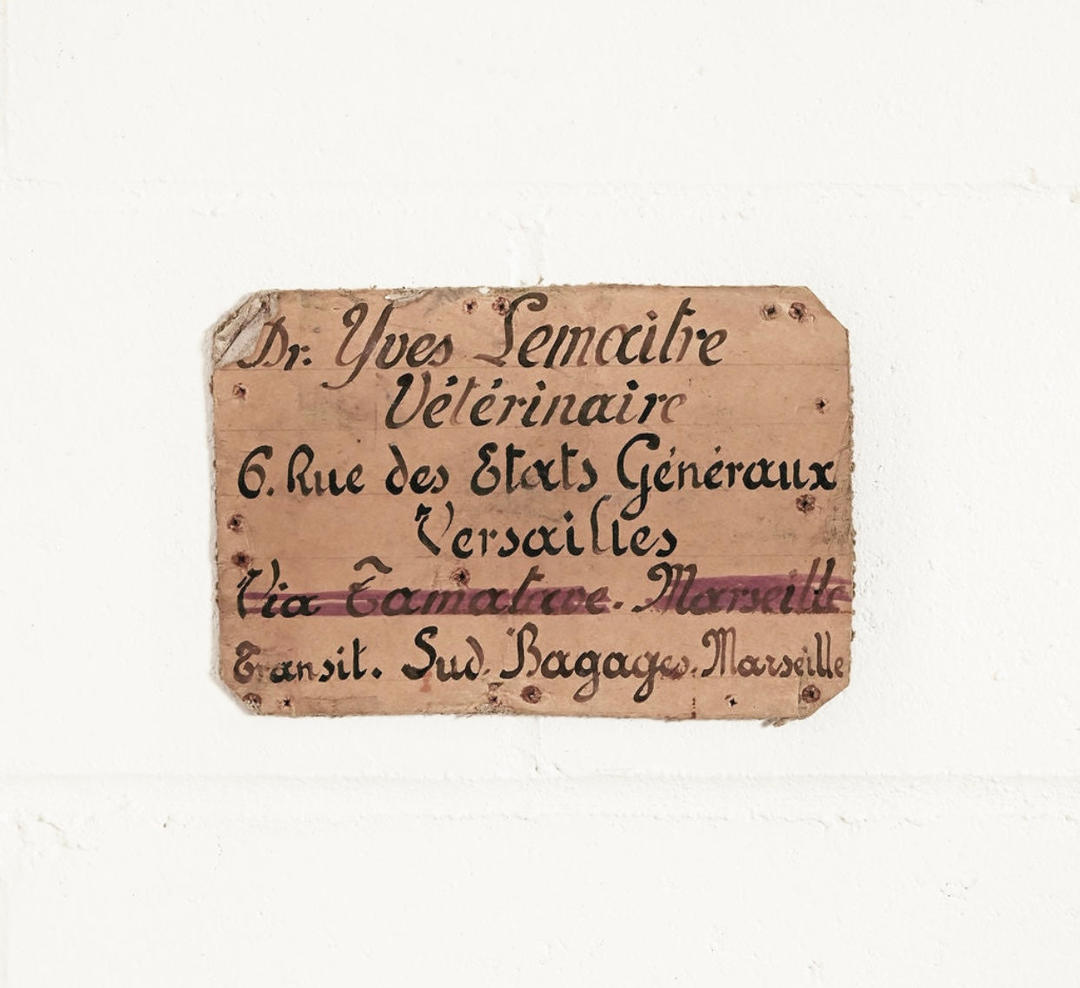 Dr. Yves Lemaitre
Vétérinaire
6. Rue des Etats Généraux
Versailles
Via Tamatave. Marseille
Transit. Sud. Bagages. Marseille